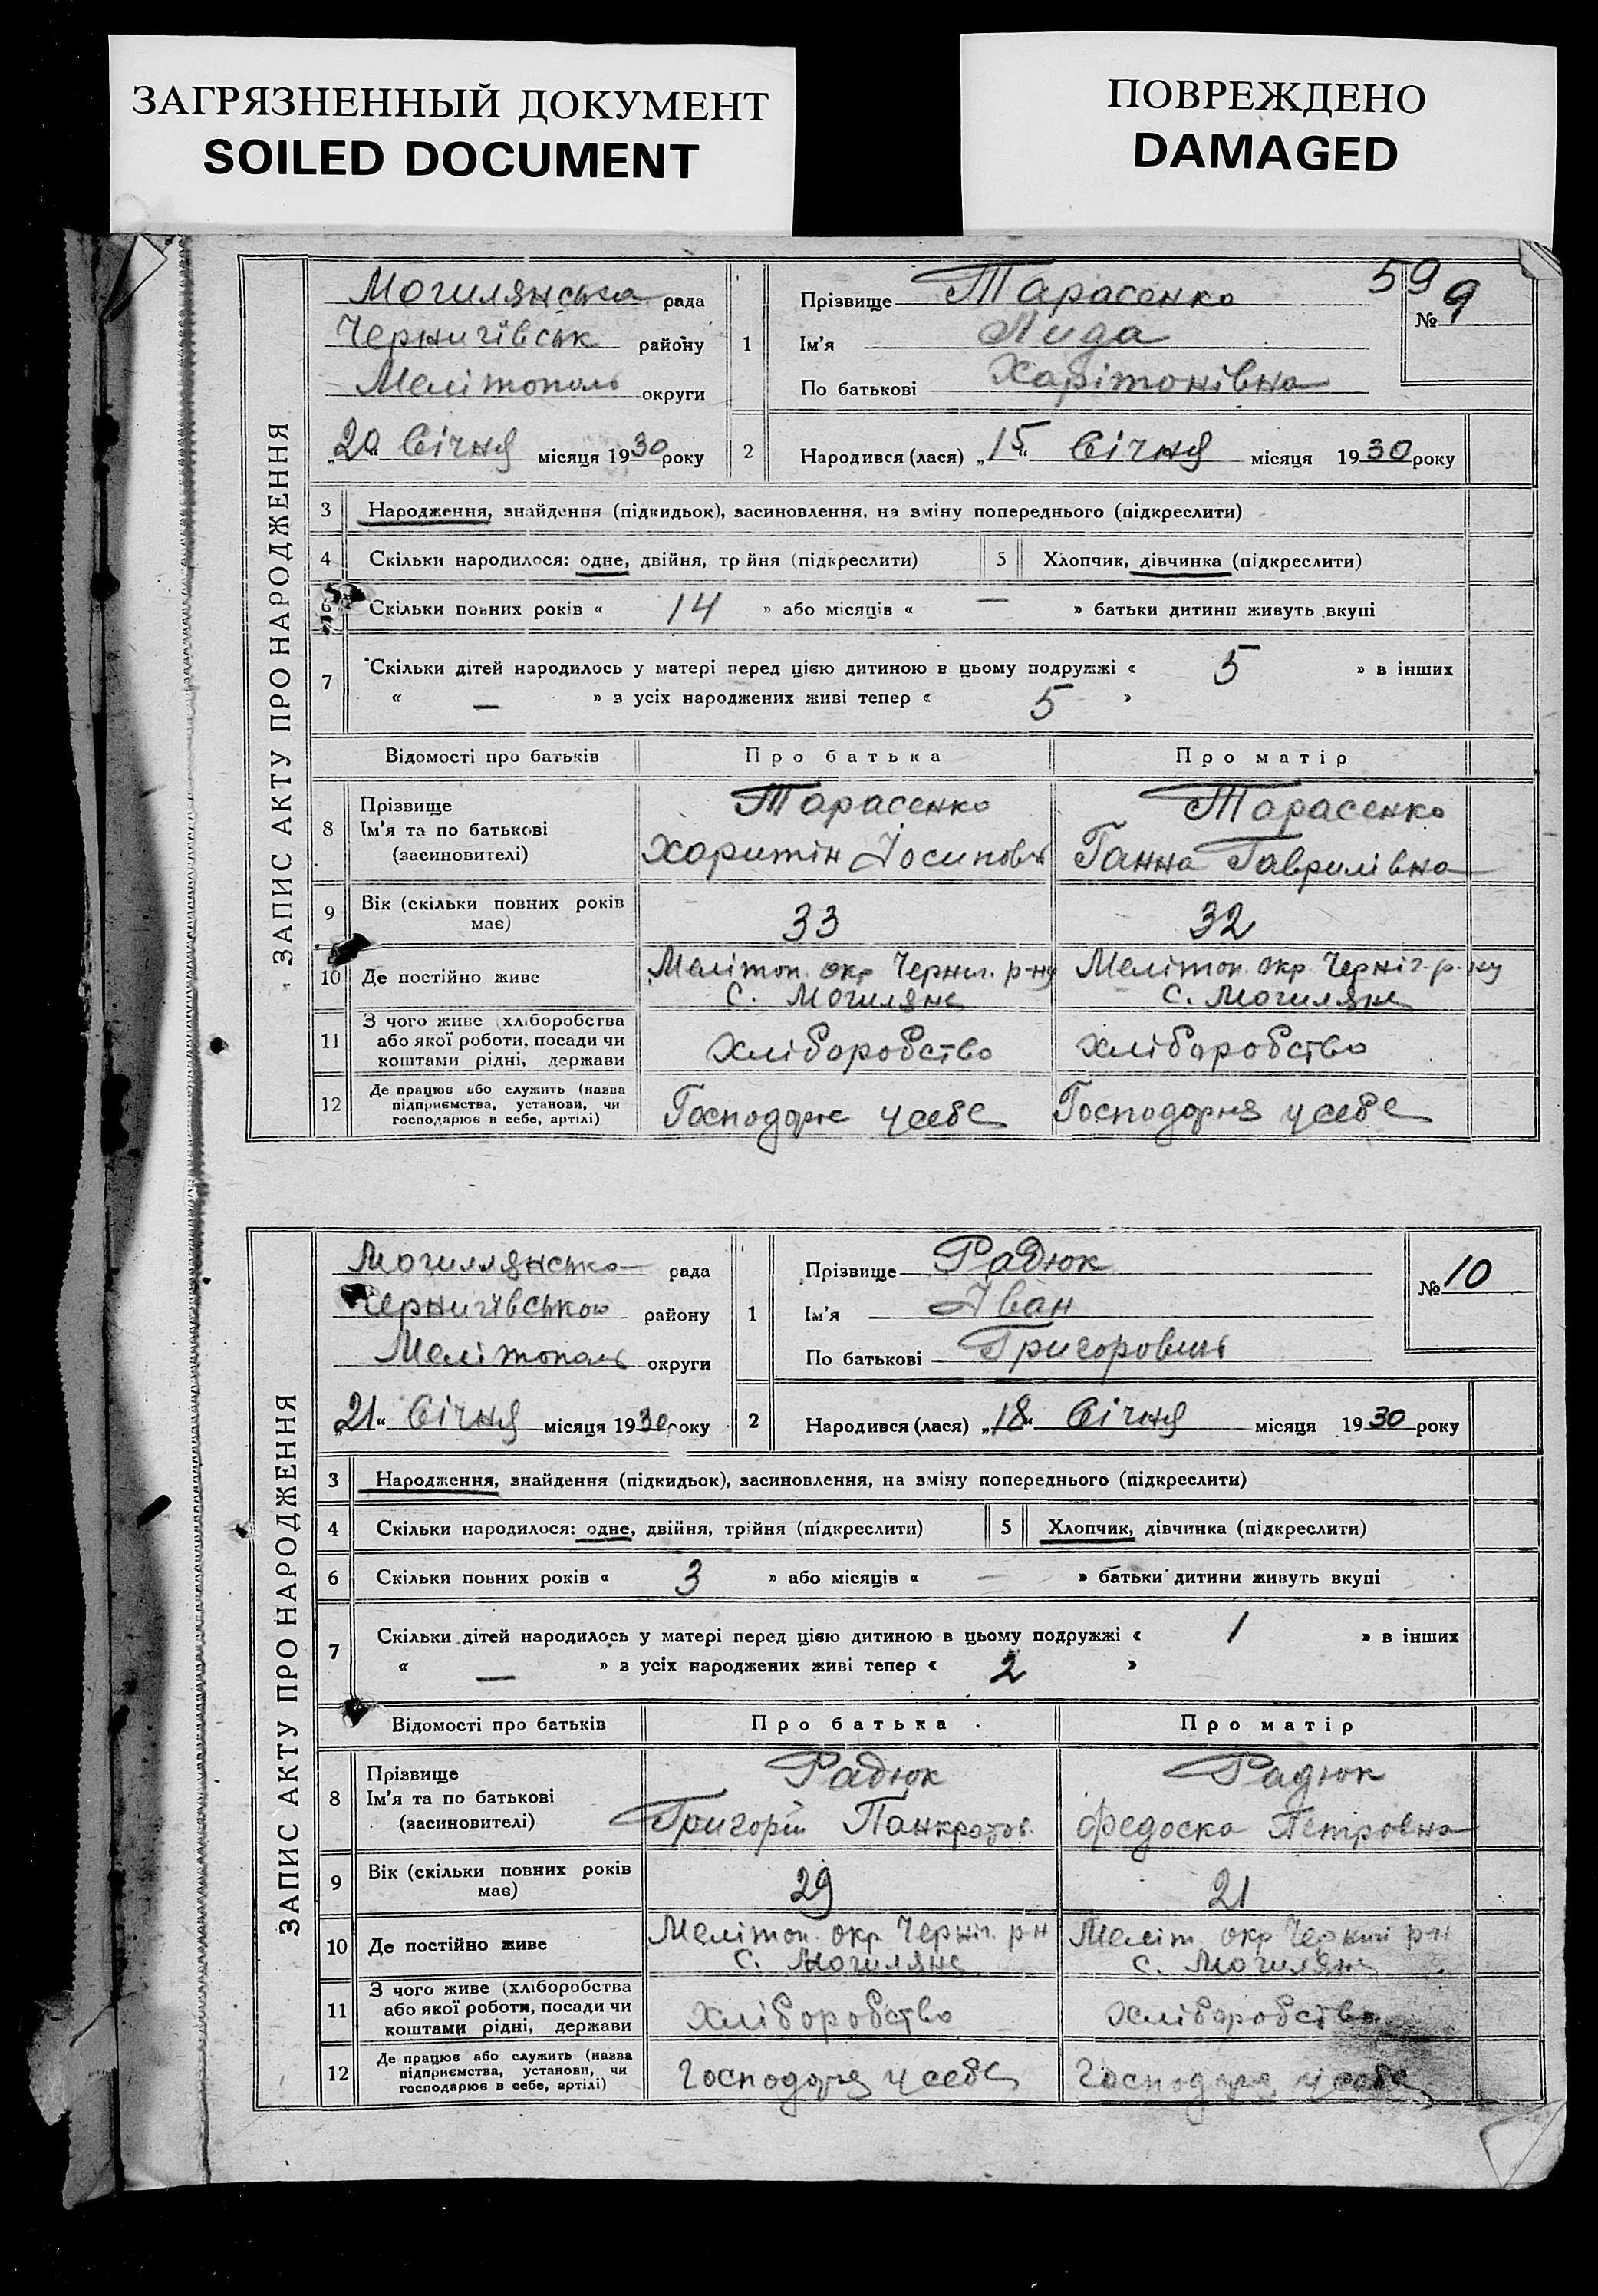 ЗАГРЯЗНЕННЫЙ ДОКУМЕНТ
SOILED DOCUMENT
ПОВРЕЖДЕНО
DAMAGED
59
ЗАПИС АКТУ ПРО НАРОДЖЕННЯ
Могилянська рада
Чернигівськ району
Мелітополь округи
„20“ Січня місяця 1930 року
1 Прізвище Тарасенко
Ім’я Лида
По батькові Харітонівна
№ 9
2 Народився (лася) „15“ Січня місяця 1930 року
3 Народження, знайдення (підкидьок), засиновлення, на зміну попереднього (підкреслити)
4 Скільки народилося: одне, двійня, трійня (підкреслити) 5 Хлопчик, дівчинка (підкреслити)
6 Скільки повних років « 14 » або місяців « — » батьки дитини живуть вкупі
7 Скільки дітей народилось у матері перед цією дитиною в цьому подружжі « 5 » в інших
« — » з усіх народжених живі тепер « 5 »
Відомості про батьків Про батька Про матір
8 Прізвище
Ім’я та по батькові
(засиновителі)
Тарасенко
Харитін Йосипов
Тарасенко
Ганна Гаврилівна
9 Вік (скільки повних років
має)
33 32
10 Де постійно живе
Мелітоп. окр Черниг. р-ну
с. Могиляне
Мелітоп. окр Черніг. р-ну
с. Могиляне
11 З чого живе (хліборобства
або якої роботи, посади чи
коштами рідні, держави
Хліборобство хліборобство
12 Де працює або служить (назва
підприємства, установи, чи
господарює в себе, артілі)
Господарює у себе Господарня у себе
ЗАПИС АКТУ ПРО НАРОДЖЕННЯ
Могиллянська рада
Чернигівською району
Мелітополь округи
„21“ Січня місяця 1930 року
1 Прізвище Радюк
Ім’я Іван
По батькові Григоровичь
№ 10
2 Народився (лася) „18“ Січня місяця 1930 року
3 Народження, знайдення (підкидьок), засиновлення, на зміну попереднього (підкреслити)
4 Скільки народилося: одне, двійня, трійня (підкреслити) 5 Хлопчик, дівчинка (підкреслити)
6 Скільки повних років « 3 » або місяців « — » батьки дитини живуть вкупі
7 Скільки дітей народилось у матері перед цією дитиною в цьому подружжі « 1 » в інших
« — » з усіх народжених живі тепер « 2 »
Відомості про батьків Про батька Про матір
8 Прізвище
Ім’я та по батькові
(засиновителі)
Радюк
Григорій Панкратов.
Радюк
Федоска Петровна
9 Вік (скільки повних років
має)
29 21
10 Де постійно живе
Мелітоп. окр Черніг. р-н
с. Могиляне
Меліт. окр р-н
с. Могиляне
11 З чого живе (хліборобства
або якої роботи, посади чи
коштами рідні, держави
Хліборобство Хліборобство
12 Де працює або служить (назва
підприємства, установи, чи
господарює в себе, артілі)
Господаря у себе Господаря у себе